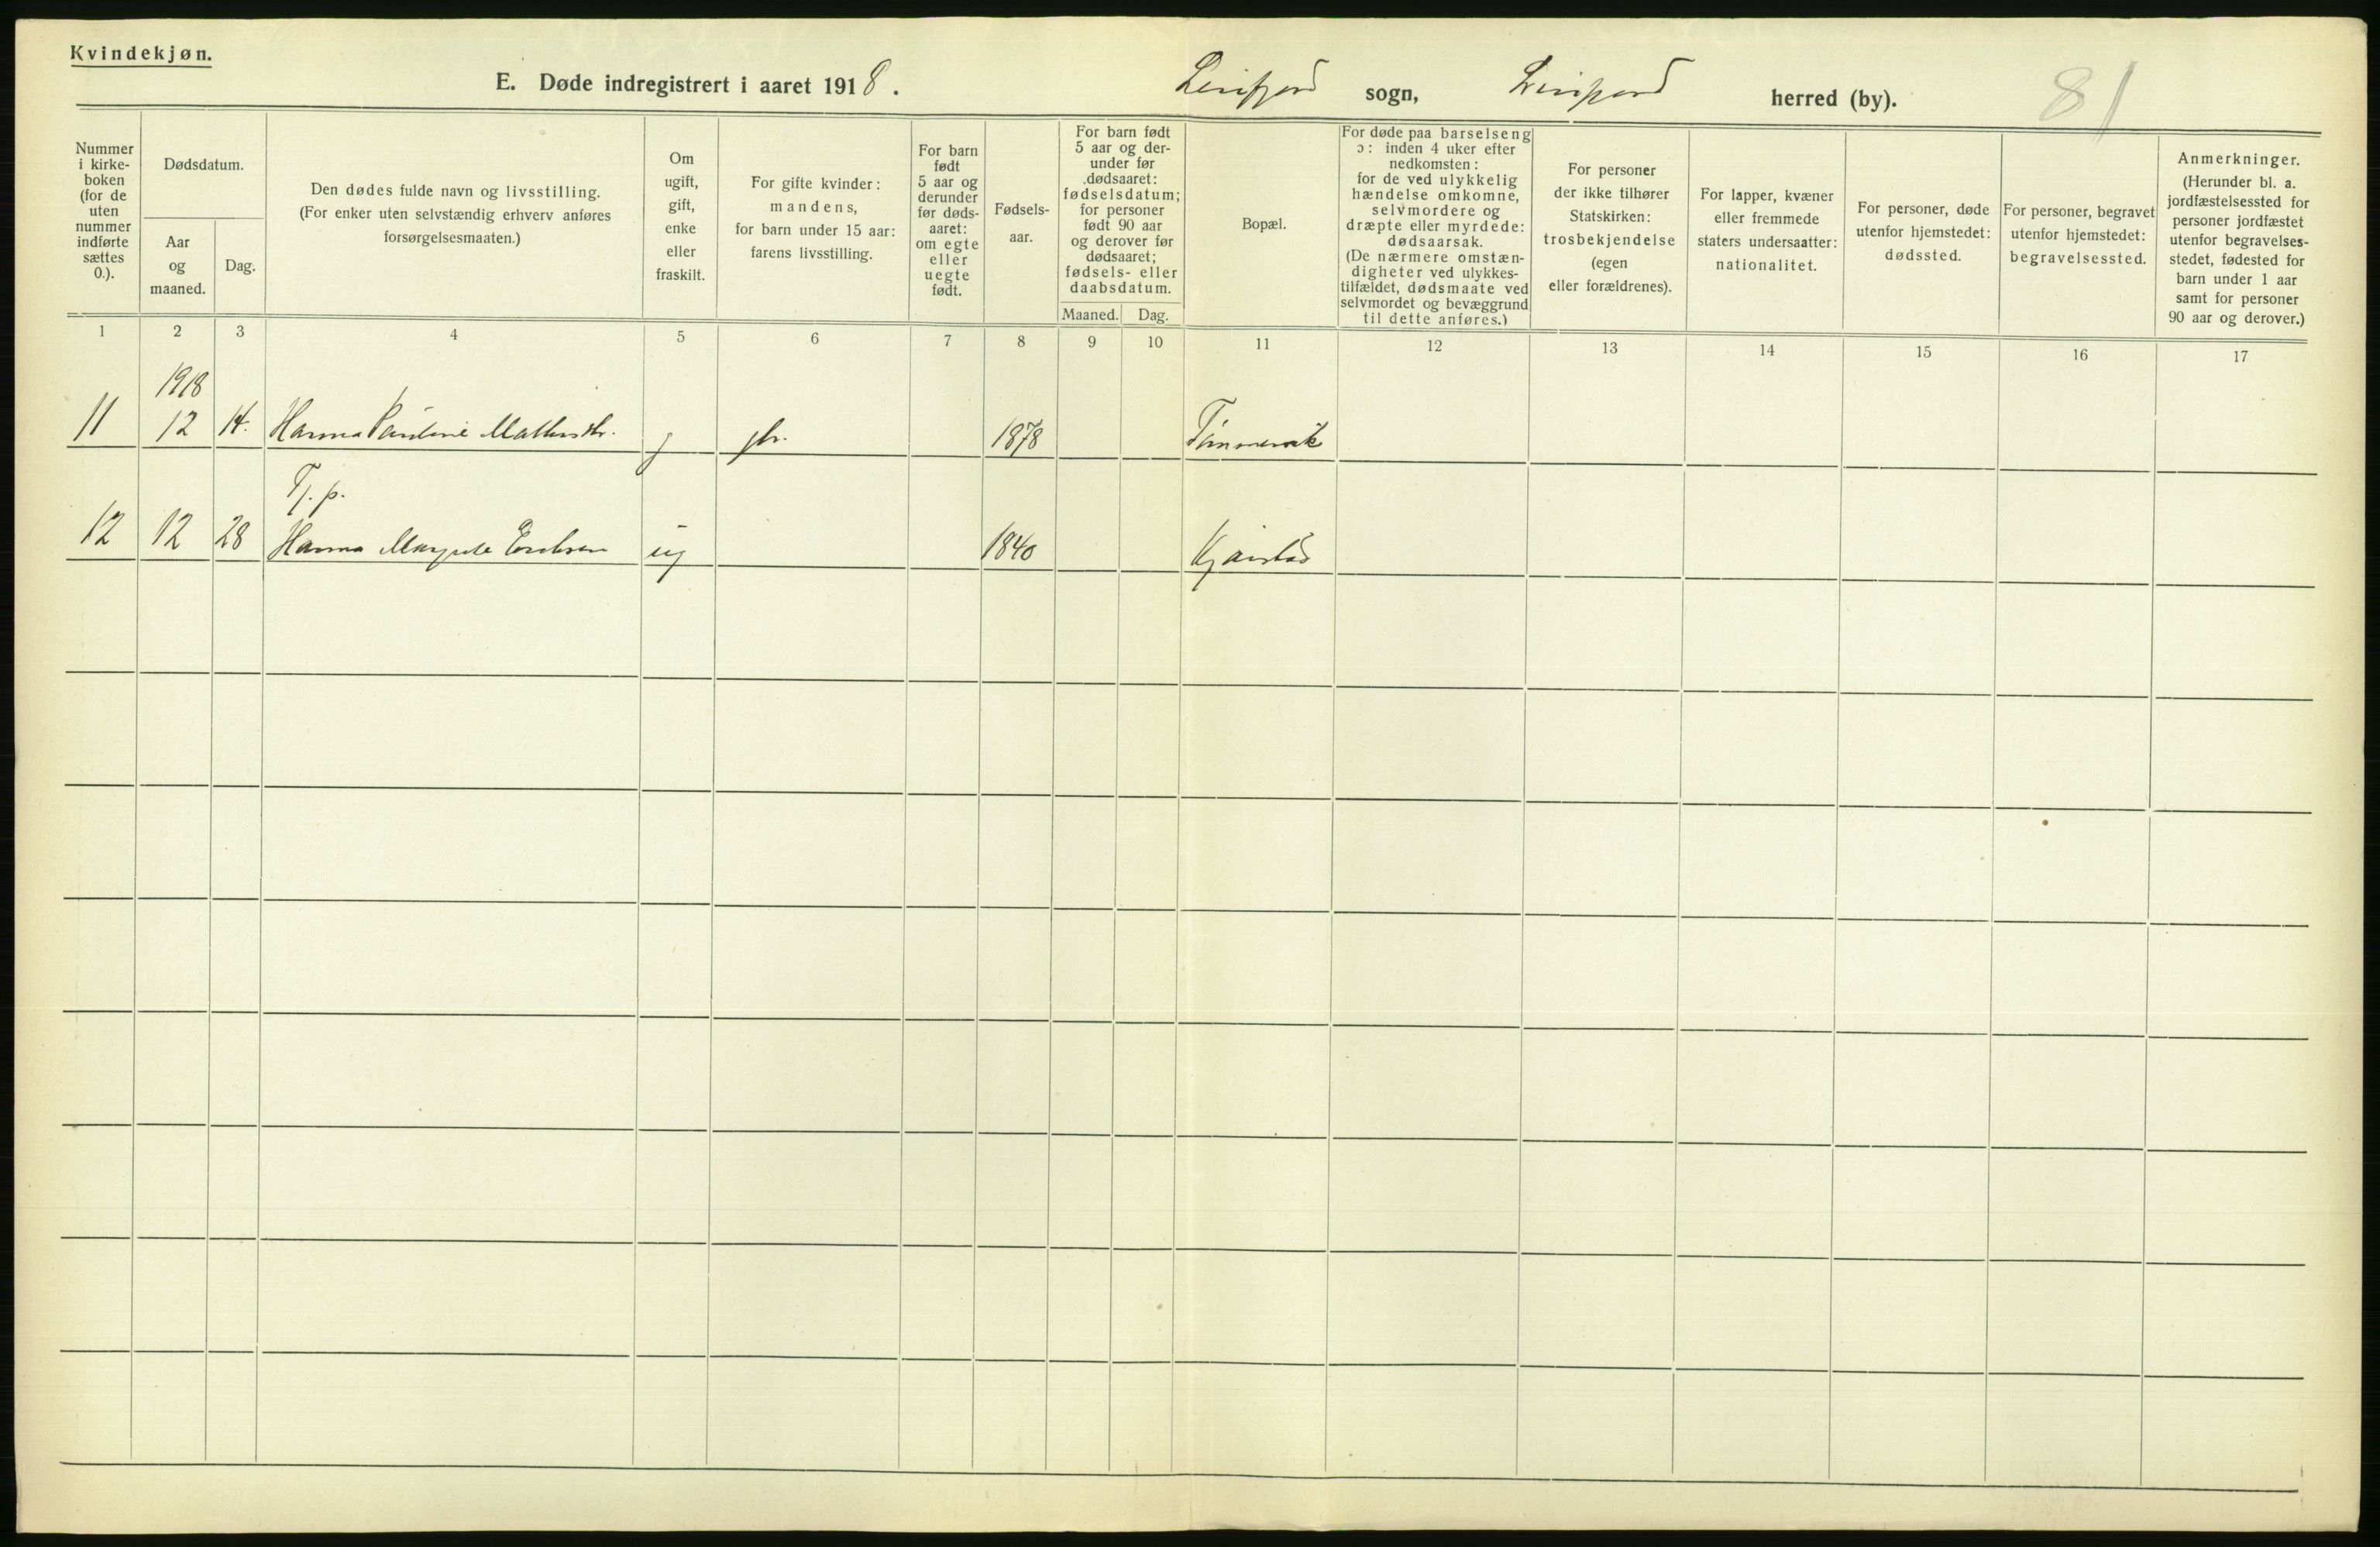 Kvindekjøn.
E. Døde indregistrert i aaret 1918. Leirfjord sogn, Leirfjord herred (by). 81
Nummer
i kirke-
boken
(for de
uten
nummer
indførte
sættes
0.).
Dødsdatum.
Aar
og
maaned.
Dag.
Den dødes fulde navn og livsstilling.
(For enker uten selvstændig erhverv anføres
forsørgelsesmaaten.)
Om
ugift,
gift,
enke
eller
fraskilt.
For gifte kvinder:
mandens,
for barn under 15 aar:
farens livsstilling.
For barn
født
5 aar og
derunder
før døds-
aaret:
om egte
eller
uegte
født.
Fødsels-
aar.
For barn født
5 aar og der-
under før
dødsaaret:
fødselsdatum;
for personer
født 90 aar
og derover før
dødsaaret;
fødsels- eller
daabsdatum.
Maaned. Dag.
Bopæl.
For døde paa barselseng
ɔ: inden 4 uker efter
nedkomsten:
for de ved ulykkelig
hændelse omkomne,
selvmordere og
dræpte eller myrdede:
dødsaarsak.
(De nærmere omstæn-
digheter ved ulykkes-
tilfældet, dødsmaate ved
selvmordet og bevæggrund
til dette anføres.)
For personer
der ikke tilhører
Statskirken:
trosbekjendelse
(egen
eller forældrenes).
For lapper, kvæner
eller fremmede
staters undersaatter:
nationalitet.
For personer, døde
utenfor hjemstedet:
dødssted.
For personer, begravet
utenfor hjemstedet:
begravelsessted.
Anmerkninger.
(Herunder bl. a.
jordfæstelsessted for
personer jordfæstet
utenfor begravelses-
stedet, fødested for
barn under 1 aar
samt for personer
90 aar og derover.)
1 2 3 4 5 6 7 8 9 10 11 12 13 14 15 16 17
1918
11 12 14. Hanna Pauline g 1878
Tj. p.
12 12 28 Hanna ug 1840